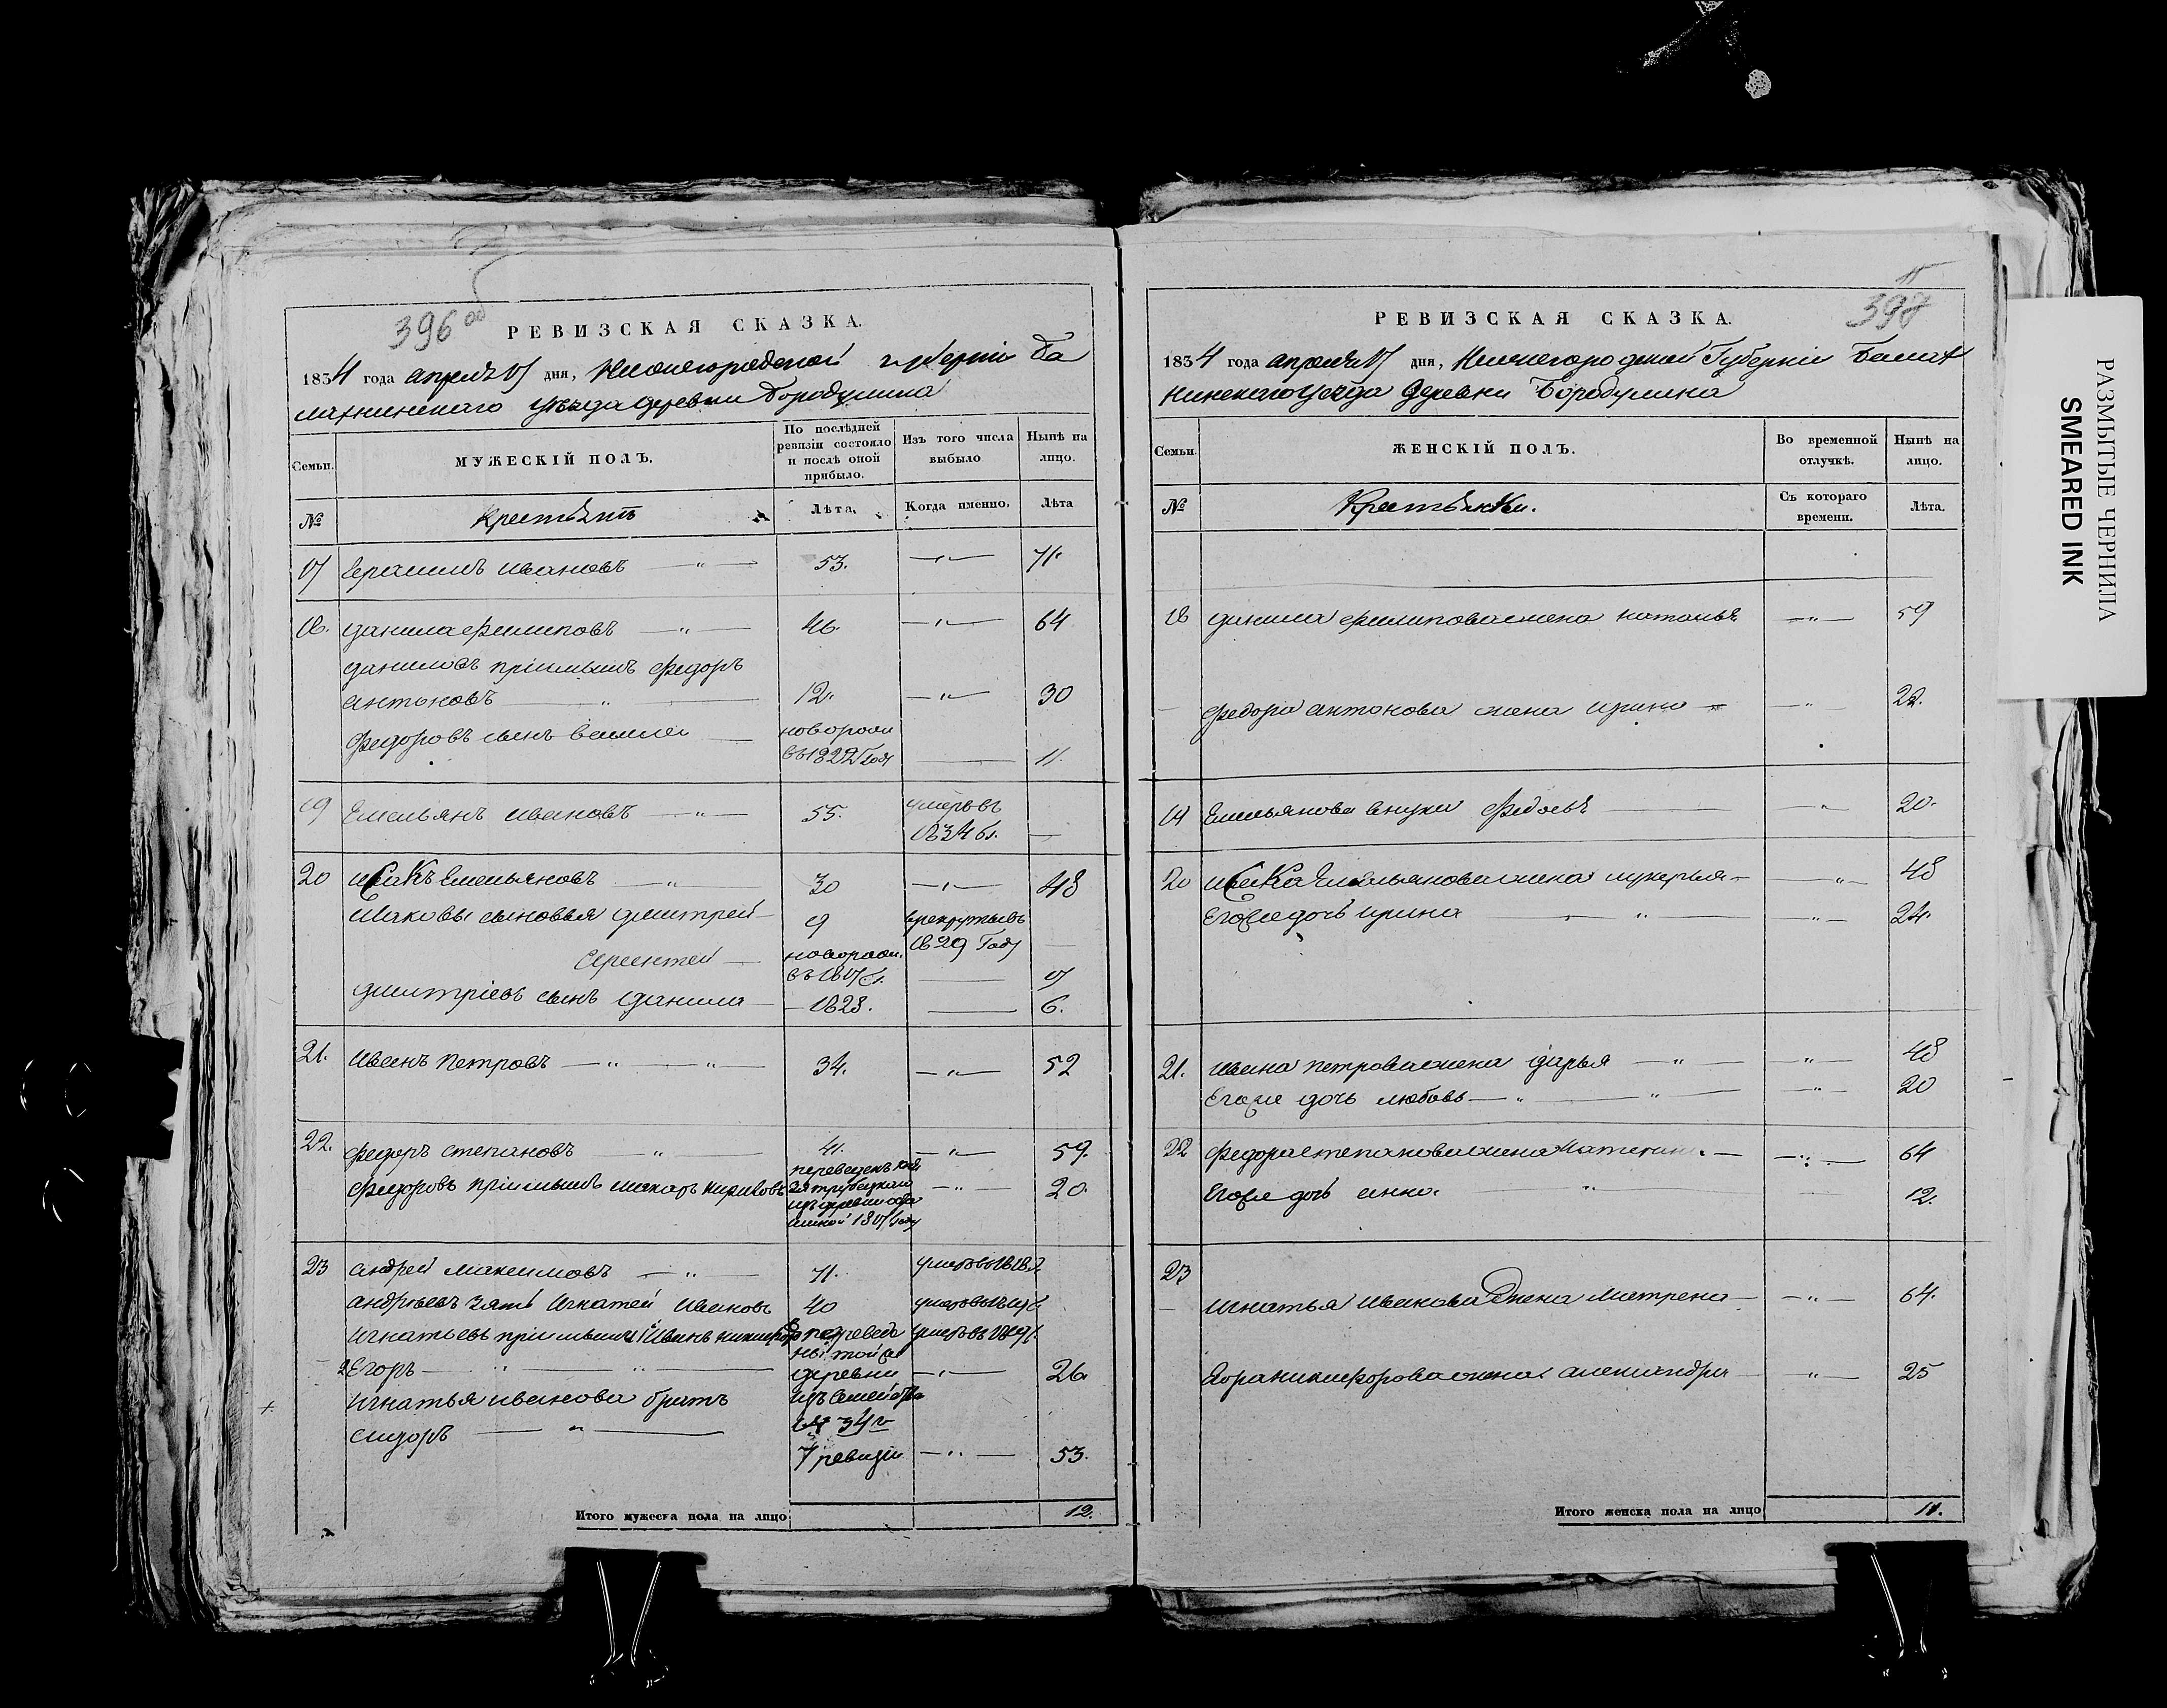 396 об
РЕВИЗСКАЯ СКАЗКА.
1834 года апреля 17 дня, Нижегородской губернiи Ба
лахнинскаго уезда деревни Бородулина
Семьи.
МУЖЕСКIЙ ПОЛЪ.
По послѣдней ревизiи состояло и послѣ оной прибыло.
Изъ того числа выбыло
Нынѣ на лицо.
№
Крестьянъ
Лѣта.
Когда именно.
Лѣта
17 Герасимъ Ивановъ — " — 53. — " — 71.
18. Данила Филиповъ — " — 46. — " — 64
Даниловъ прiимышъ Федоръ
Антоновъ — " — 12. — " — 30
Федоровъ сынъ Василей — новорож
въ 1822 Году — 11.
19 Емельянъ Ивановъ — " — 55. умеръ въ
1834 г. —
20 Исакъ Емельяновъ — " 30 — " — 48
Исаковы сыновья Дмитрей — 9 в рекруты въ
1829 Году —
Терентей — новорож.
въ 1817 г. — 17
Дмитрiевъ сынъ Данила — 1828. — 6.
21. Иванъ Петровъ — " — " — 34. — " — 52
22. Федоръ Степановъ — " — 41. — " — 59.
Федоровъ прiимышъ Макаръ Кириловъ — " — 20.
переведенъ
из деревни
1817 году
23 Андрей Максимовъ — " — 71. умеръ въ 1818 г.
Андреевъ зять Игнатей Ивановъ 40 умеръ въ
Игнатьевъ прiимыши 1 Иванъ Никифоро переведе умеръ въ
ны той же
2 Егоръ — " — " — деревни — " — 26
Игнатья Иванова братъ изъ семейства
Сидоръ — " — 34
7 ревизiи — " — 53.
Итого мужеска пола на лицо 12.
398
РЕВИЗСКАЯ СКАЗКА.
1834 года апреля 17 дня, Нижегородской Губернiи Балах
нинскаго уезда Деревни Бородулина
Семьи.
ЖЕНСКIЙ ПОЛЪ.
Во временной отлучкѣ.
Нынѣ на лицо.
№
Крестьянки.
Съ котораго времени.
Лѣта.
18 Данила Филипова жена Наталья — " — 59
Федора Антонова жена Ирина — " — 22.
19 Емельянова внука Федосья — " — 20.
20 Исака Емельянова жена Лукерья — " — 48
Его же дочь Ирина — " — " — 24.
21. Ивана Петрова жена Дарья — " — " — 48
Его же дочь Любовь — " — " — " — 20
22 Федора Степанова жена — " — 64
Его же дочь Анна — " — 12.
23
Игнатья Иванова Жена Матрена — " — 64.
Егора Никифорова жена Александра — " — 25
Итого женска пола на лицо 11.
РАЗМЫТЫЕ ЧЕРНИЛА
SMEARED INK